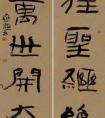 往聖繼絶
萬世開太